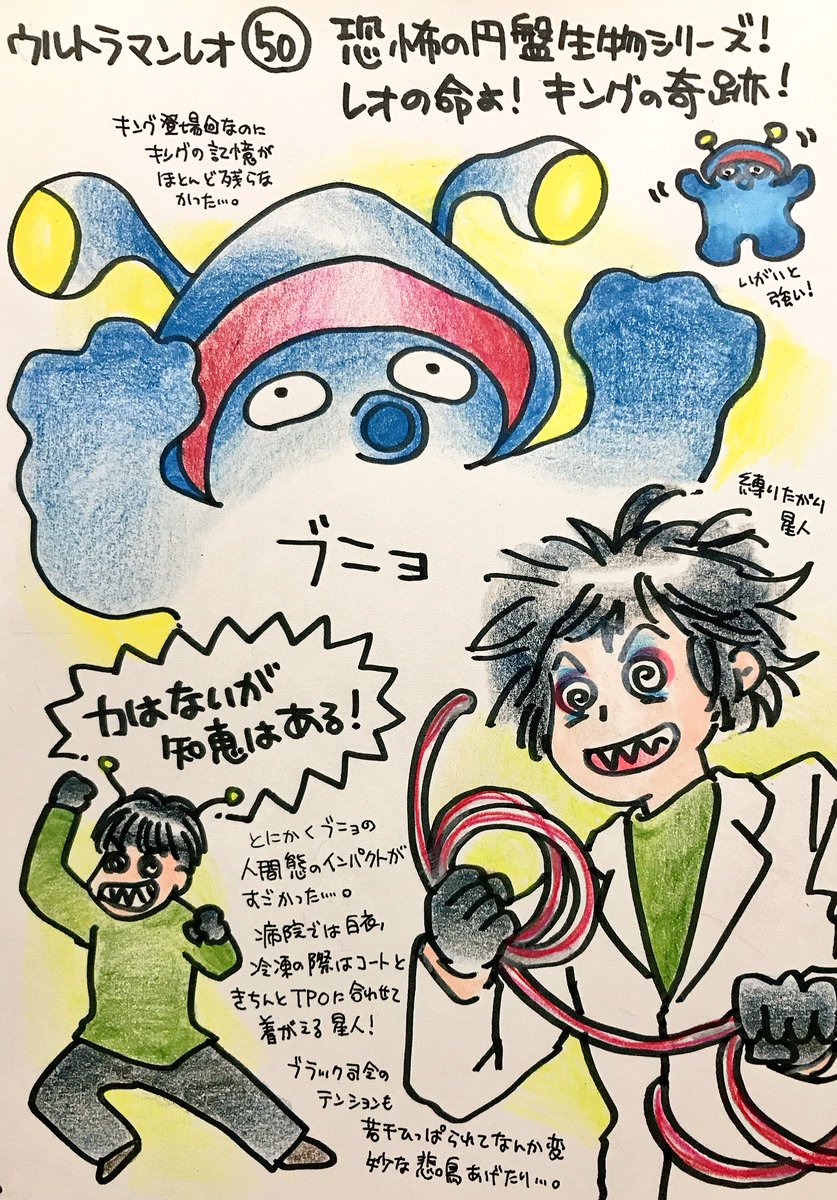 ウルトラマンレオ 50 恐怖の円盤生物シリーズ!
レオの命よ! キングの奇跡!
キング登場回なのに
キングの記憶が
ほとんど残らな
かった…。
いがいと
強い!
ブニョ
縛りたがり
星人
力はないが
知恵はある!
とにかくブニョの
人間態のインパクトが
すごかった…。
病院では白衣、
冷凍の際はコートと
きちんとTPOに合わせて
着がえる星人!
ブラック司令の
テンションも
若干ひっぱられてなんか変
妙な悲鳴あげたり…。